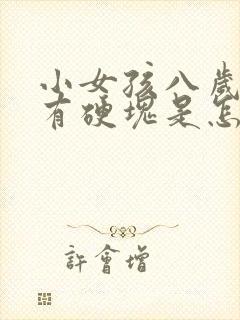 小女孩八岁
有硬塊是怎
許會增